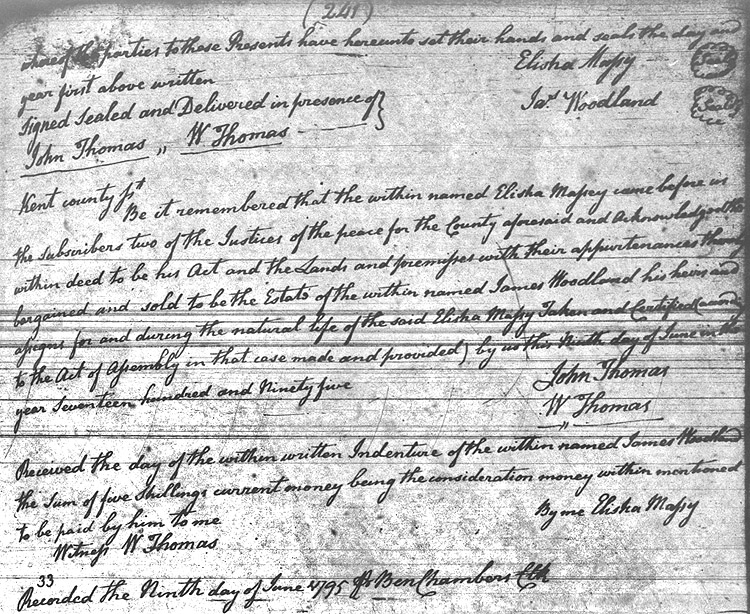 (241)
whereof the parties to these Presents have hereunto set their hands and seals the day and
year first above written
Elisha Massy Seal
Signed Sealed and Delivered in presence of
Jas. Woodland Seal
John Thomas ,, W Thomas
Kent County Sst
Be it remembered that the within named Elisha Massey came before us
the subscribers two of the Justices of the peace for the County aforesaid and Acknowledged the
within deed to be his Act and the Lands and premisses with their appurtenances thereby
bargained and sold to be the Estate of the within named James Woodland his heirs and
assigns for and during the natural life of the said Elisha Massy Taken and Certified (
to the Act of Assembly in that case made and provided) by us this Ninth day of June in the
year Seventeen hundred and Ninety five
John Thomas
W Thomas
Received the day of the within written Indenture of the within named James Woodland
the Sum of five Shillings current money being the consideration money within mentioned
to be paid by him to me
By me Elisha Massy
Witness W Thomas
33
Recorded the Ninth day of June 1795 Ben Chambers Clk